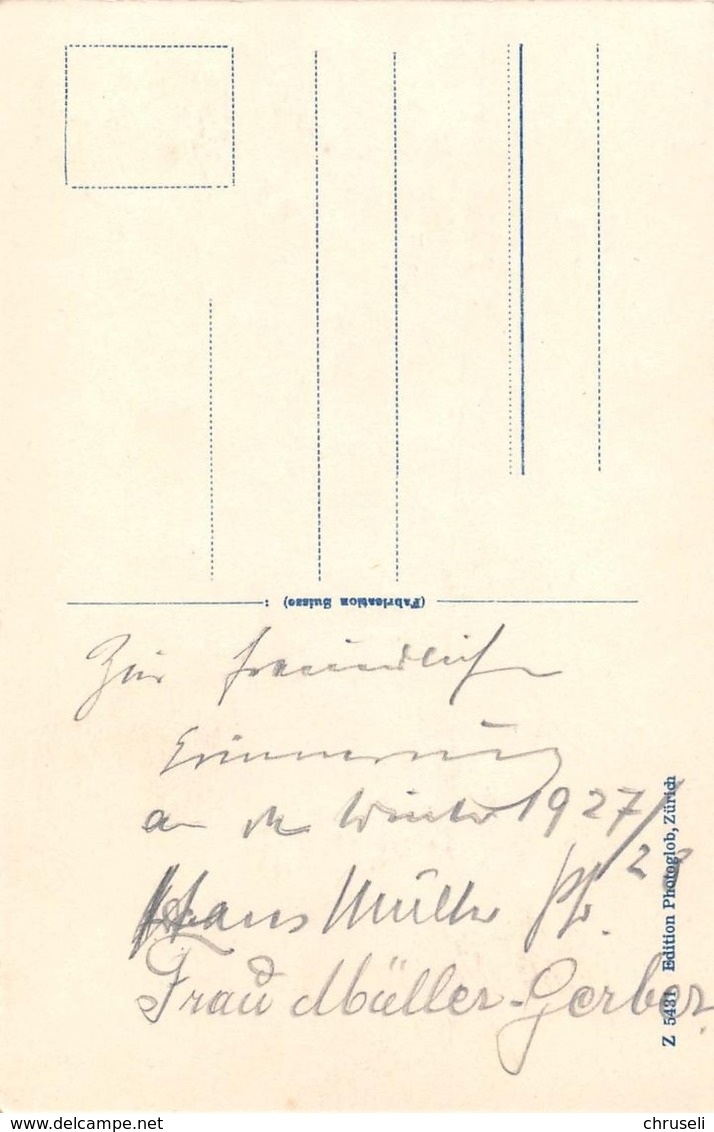 (Fabrication Suisse) :
Zur freundlich
Erinnerung
an de Winter 1927/28
Hans Müller Pfr.
Frau Müller-Gerber.
Z 5431 Edition Photoglob, Zürich
delcampe.net
chruseli